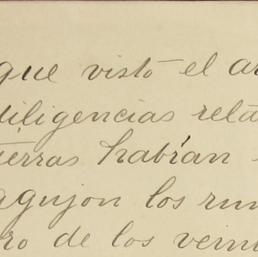 que vistó el ar
diligencias rela
tierras habrían
aguijon los rum
ro de los veini